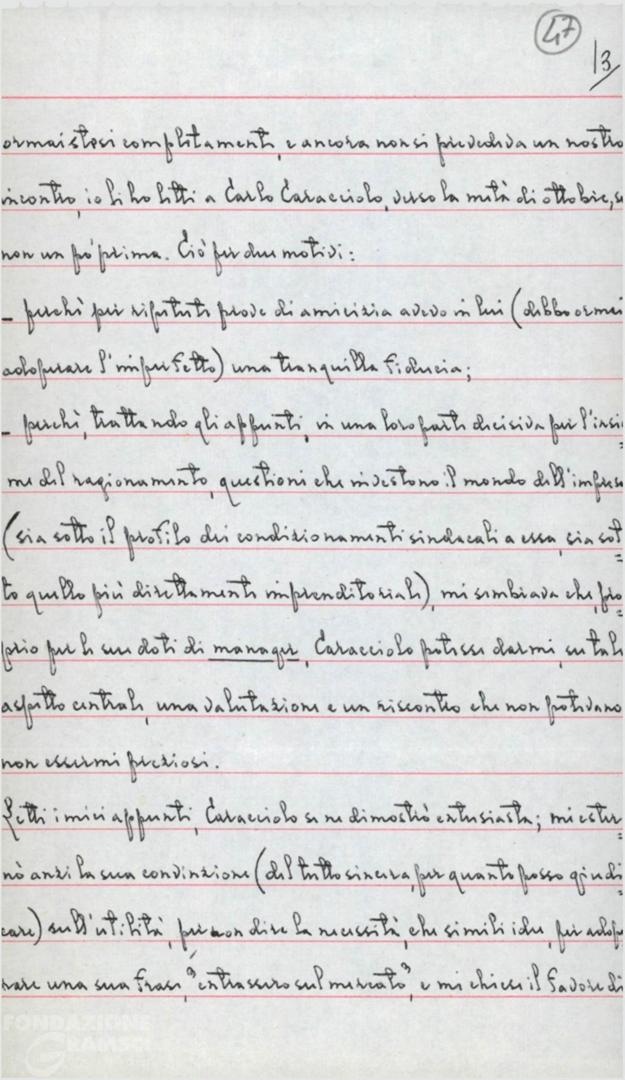 47
13
ormai stesi completamente, e ancora non si prevedeva un nostro
incontro, io li ho letti a Carlo Caracciolo, verso la metà di ottobre, se
non un pò prima. Ciò per due motivi:
- perchè per ripetute prove di amicizia avevo in lui (debbo ormai
adoperare l'imperfetto) una tranquilla fiducia;
- perchè, trattando gli appunti, in una loro parte decisiva per l'insie=
me del ragionamento, questioni che investono il mondo dell'impresa
(sia sotto il profilo dei condizionamenti sindacali a essa, sia sot=
to quello più direttamente imprenditoriale), mi sembrava che, pro=
prio per le sue doti di manager, Caracciolo potesse darmi, su tale
aspetto centrale, una valutazione e un riscontro che non potevano
non essermi preziosi.
Letti i miei appunti, Caracciolo se ne dimostrò entusiasta; mi ester=
nò anzi la sua convinzione (del tutto sincera, per quanto posso giudi=
care) sull'utilità, per non dire la necessità, che simili idee, per adope
rare una sua frase, "entrassero sul mercato", e mi chiese il favore di
FONDAZIONE
GRAMSCI